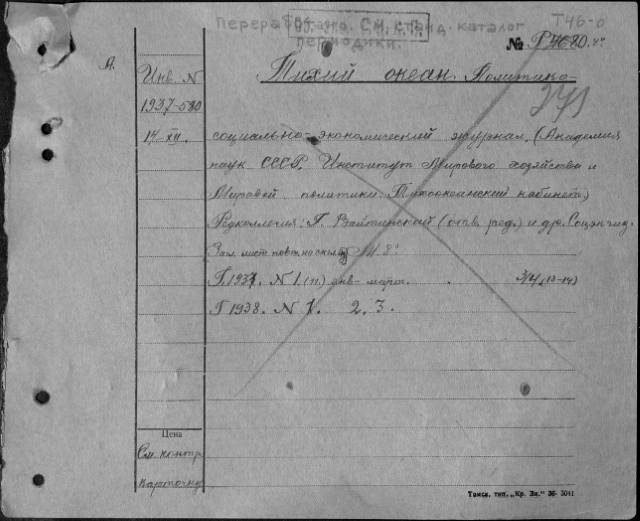 Переработано. См. станд. каталог
периодики.
Т46-о
№ Р 4680. 8°
А.
Инв. N
1937-580
14-XII.
Тихий океан. Политико-
271
социально-экономический журнал. (Академия
наук СССР. Институт Мирового хозяйства и
Мировой политики: Тихоокеанский кабинет.)
Редколлегия: Г. Войтинский (отв. ред.) и др. Соцэкгиз.
8°
Г. 1937. N 1. (11.) янв-март. . 3/4 (13-14)
Г 1938. N 1. 2. 3.
Цена
См. контр.
карточку
Томск, тип. „Кр. Зн." 36-3011